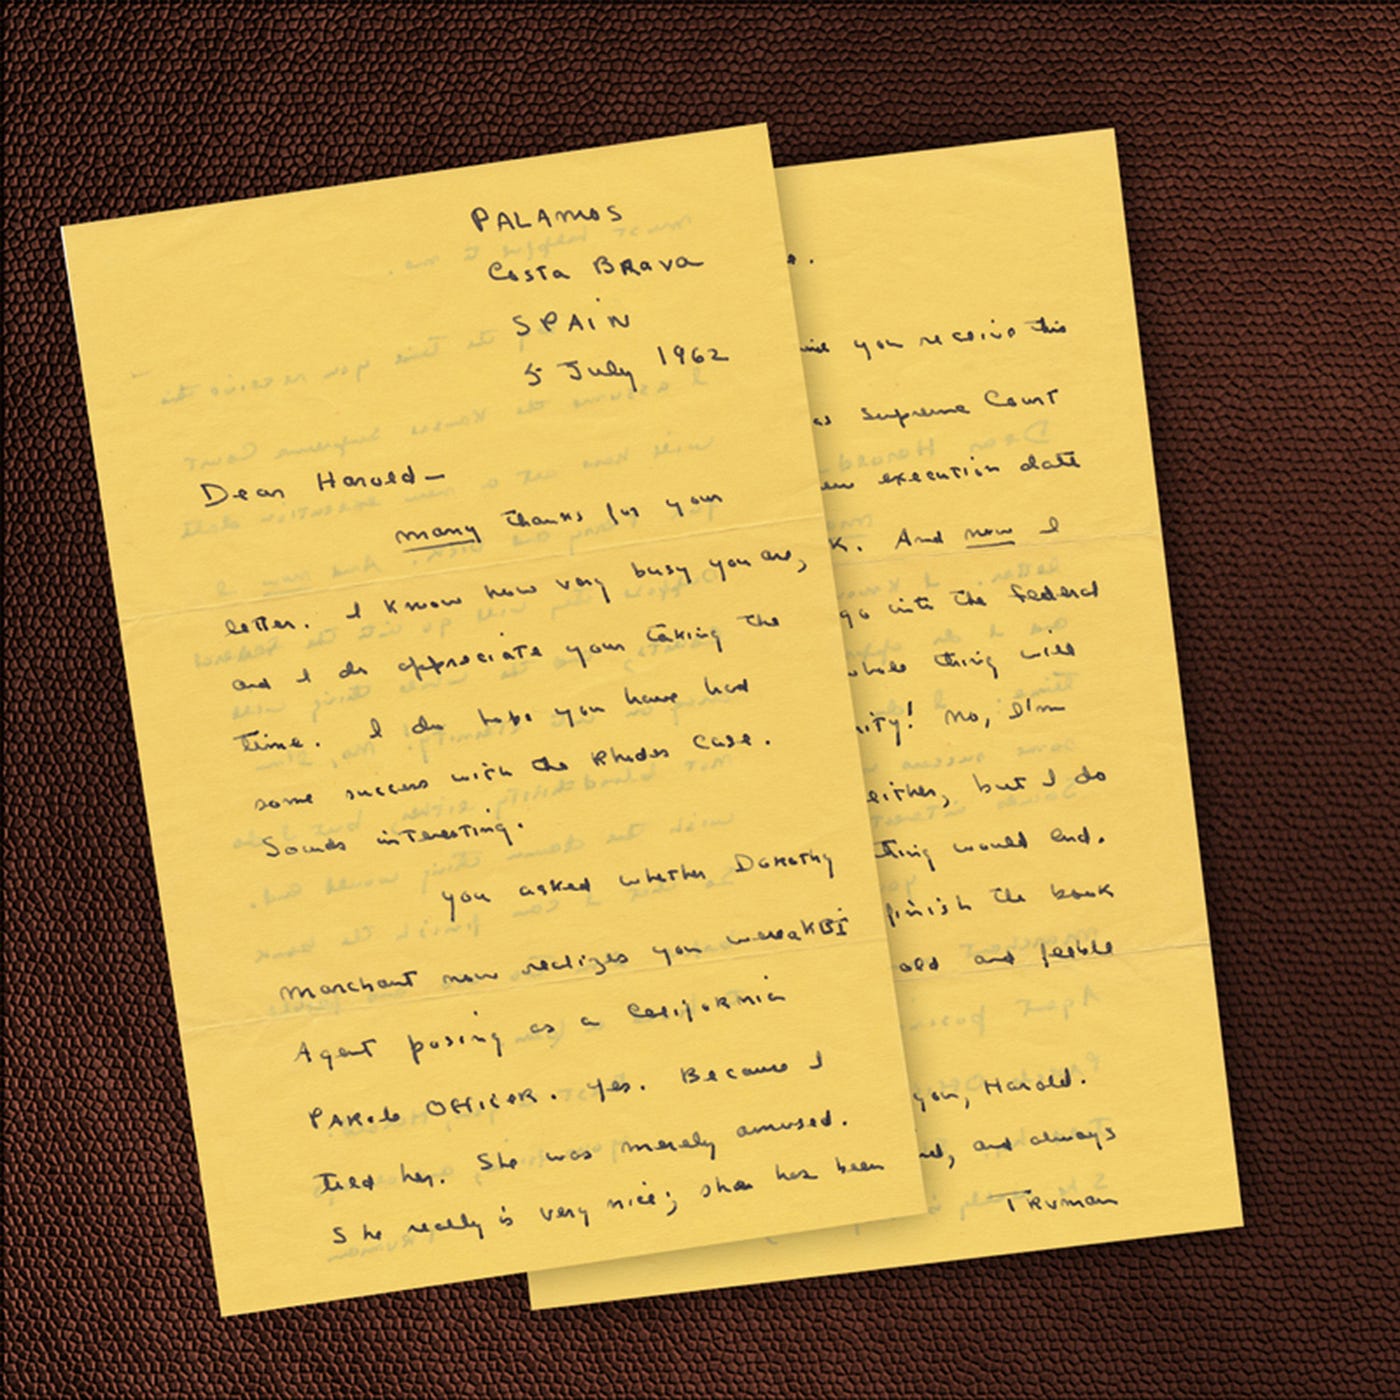 PALAMOS
Costa BRAVA
SPAIN
5 July 1962
Dear Harold—
many thanks for your
letter. I know how very busy you are,
and I do appreciate your taking the
time. I do hope you have had
some success with the Rhodes case.
Sounds interesting.
you asked whether Dorothy
Marchant now realizes you were a KBI
Agent posing as a California
PAROLE OFFICER. Yes. Because I
told her. She was merely amused.
She really is very nice; she has been
you receive this
as Supreme Court
new execution date
k. And now I
go into the Federal
whole thing will
nity! No, I'm
either, but I do
thing would end.
finish the book
old and feeble
you, Harold.
and always
TRUMAN